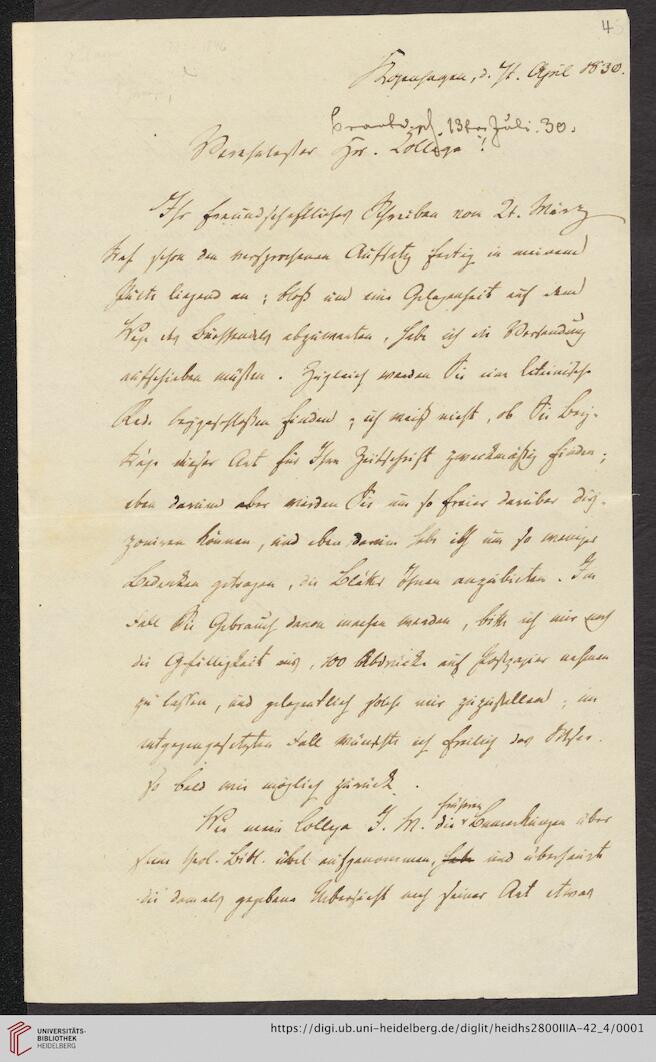 4
Kopenhagen, d. 7t. April 1830.
beantw. d. 13ten Juli. 30.
Verehrtester Hr. College!
Ihr freundschaftliches Schreiben vom 2t. März
traf schon den versprochenen Aufsatz fertig in meinem
Pulte liegend an; bloß um eine Gelegenheit auf dem
Wege des Buchhandels abzuwarten, habe ich die Versendung
aufschieben müssen. Zugleich werden Sie eine lateinische
Rede beygeschlossen finden; ich weiß nicht, ob Sie Bey-
träge dieser Art für Ihre Zeitschrift zweckmäßig finden;
eben darum aber werden Sie um so freier darüber dis-
poniren können, und eben darum habe ich um so weniger
Bedenken getragen, die Blätter Ihnen anzubieten. Im
Fall Sie Gebrauch davon machen werden, bitte ich mir noch
die Gefälligkeit aus, 100 Abdrücke auf Postpapier nehmen
zu lassen, und gelegentlich solche mir zuzustellen; im
entgegengesetzten Fall wünschte ich freilich das
so bald wie möglich zurück.
Wie mein College J. M. die früheren Bemerkungen über
seine bibl. übel aufgenommen, habe und überhaupt
die damals gegebene Uebersicht nach seiner Art etwas
UNIVERSITÄTS-
BIBLIOTHEK
HEIDELBERG
https://digi.ub.uni-heidelberg.de/diglit/heidhs2800IIIA-42_4/0001